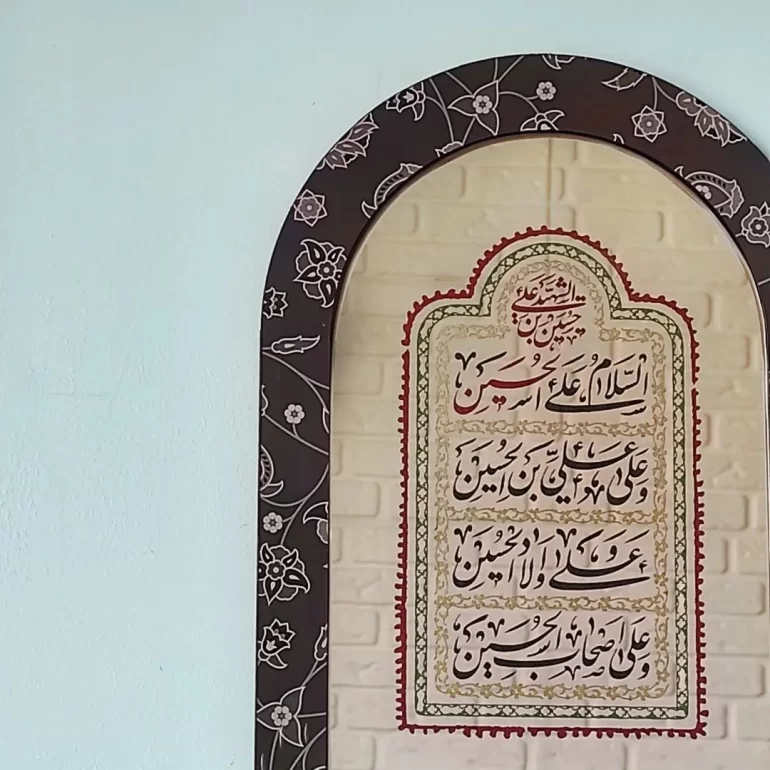 الشهید
حسین بن علی
السَّلامُ عَلَی الحُسَین
وَعَلی عَلِیِّ بنِ الحُسَین
وَعَلی اَولادِ الحُسَین
وَعَلی اَصحابِ الحُسَین